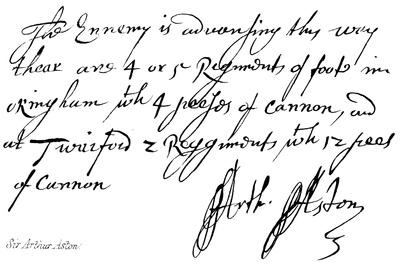 The Ennemy is advansing this way
thear are 4 or 5 Regiments of foote in
okingham wth 4 peeses of Cannon, and
at Twiiford 2 Reggiments wth 12 pees
of Cannon
Arth. Aston
Sir Arthur Aston.